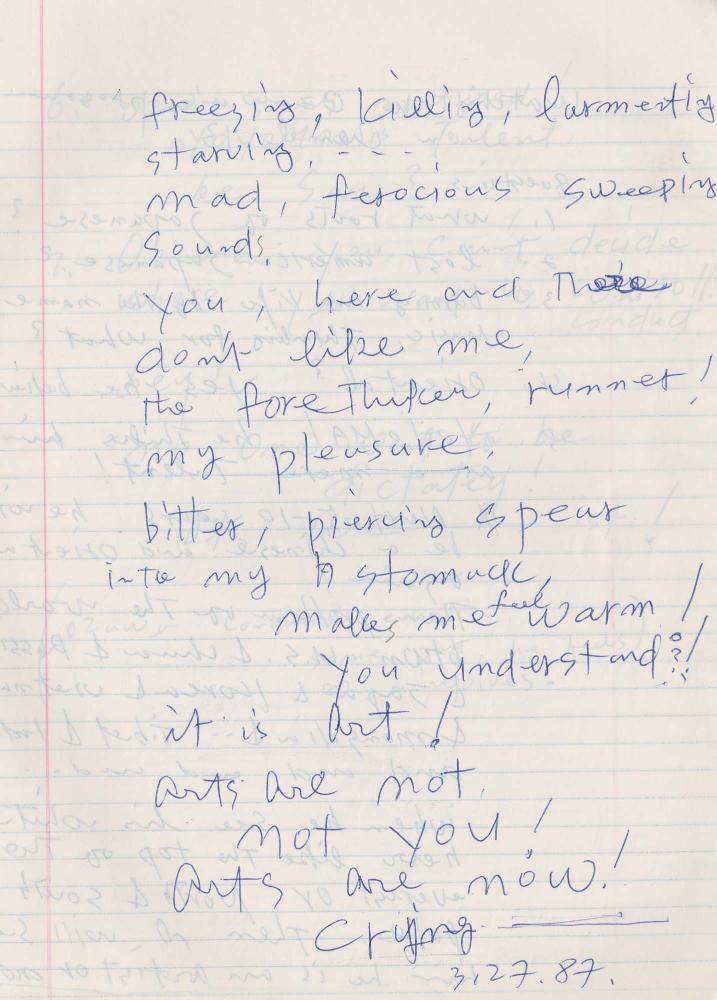 freezing, killing, tarmenting
starving. - - -
mad, ferocious sweeping
sounds.
you, here and There
don't like me,
the foreThinker, runner!
my pleasure.
bitter, piercing spear
into my stomack,
makes me feel warm!
you understand?!
it is art!
arts are not.
not you!
arts are now!
Crying
3.27.87.